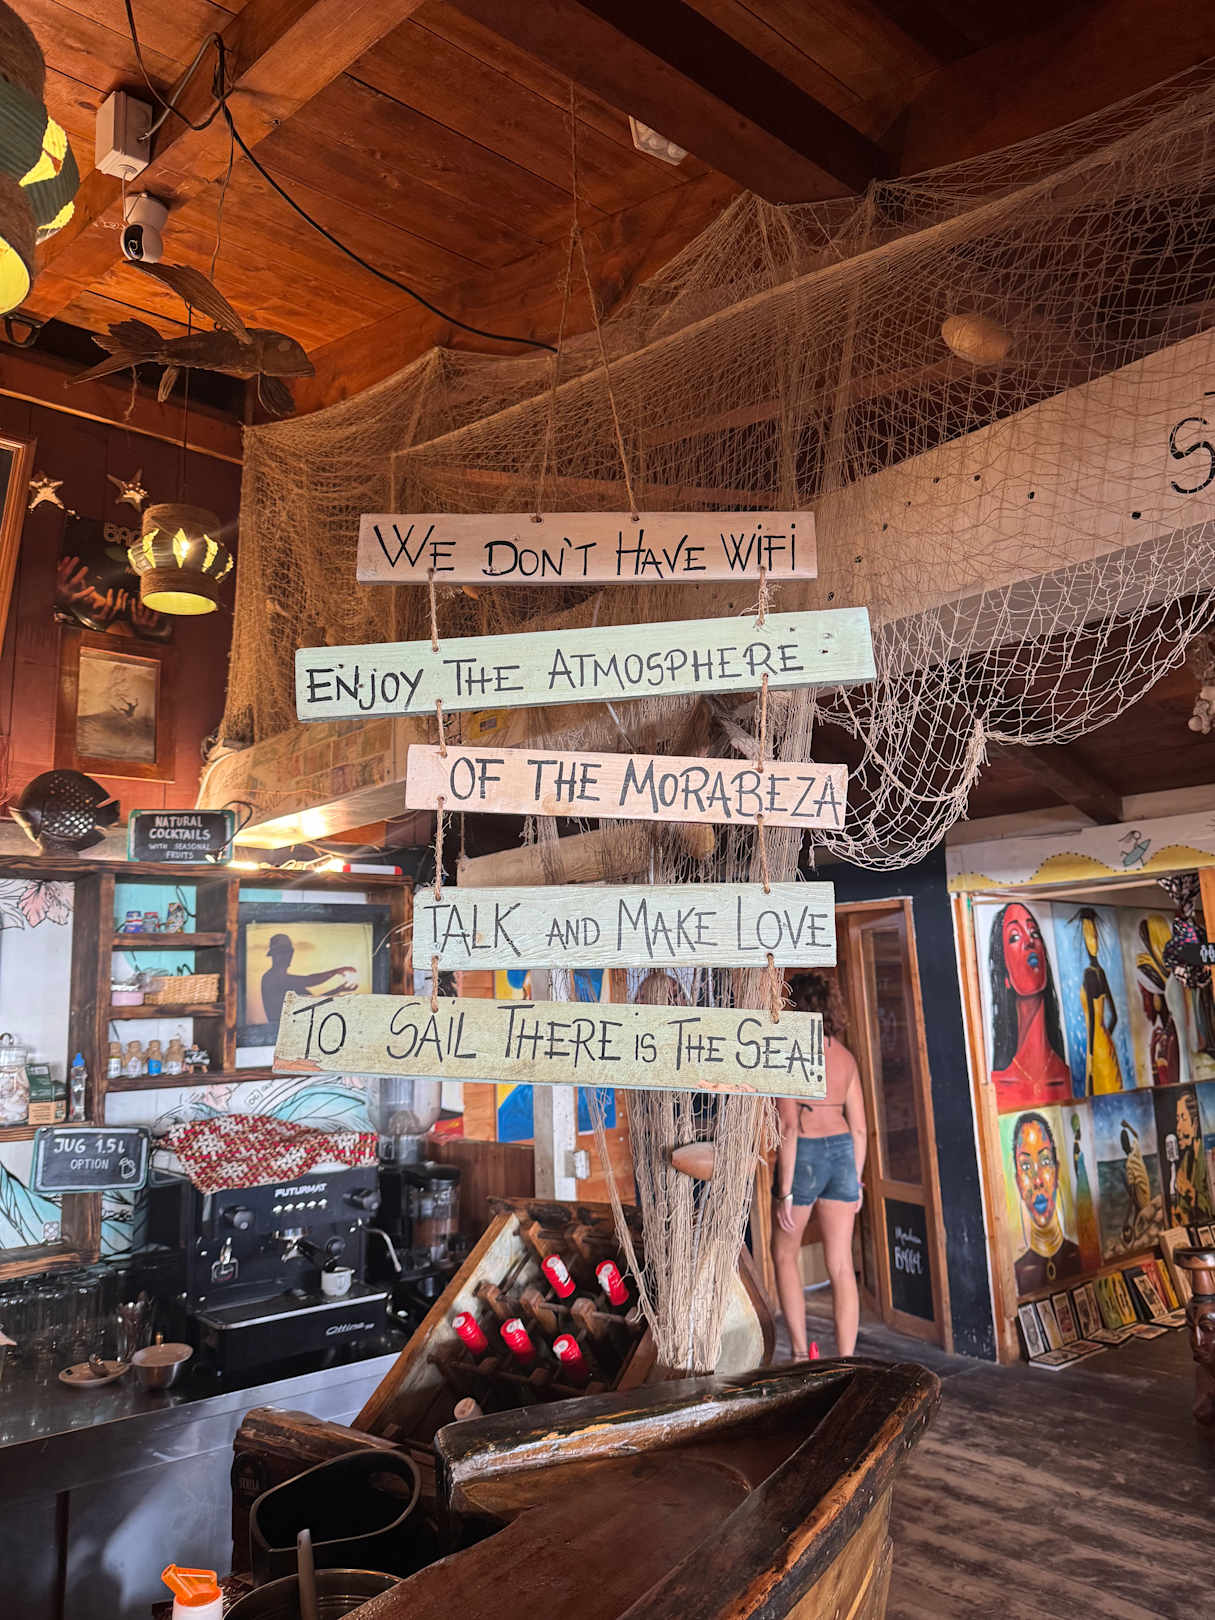 WE DON'T HAVE WIFI
ENJOY THE ATMOSPHERE
OF THE MORABEZA
TALK AND MAKE LOVE
TO SAIL THERE IS THE SEA!!
NATURAL
COCKTAILS
WITH SEASONAL
FRUITS
JUG 1.5L
OPTION
FUTURMAT
Ottima
S